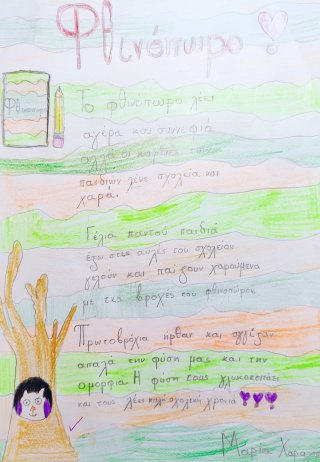 Φθινόπωρο
Φθινόπωρο
Το φθινόπωρο λέει
αγέρα και συννεφιά
αλλά οι καρδιές των
παιδιών λένε σχολεία και
χαρά.
Γέλια παντού παιδιά
έξω στις αυλές του σχολείου
γελούν και παίζουν χαρούμενα
με τις βροχές του φθινοπώρου.
Πρωτοβρόχια ήρθαν και αγγίζαν
απαλά την φύση μας και την
ομορφιά Η φύση τους γλυκοκοιτάει
και τους λέει καλή σχολική χρονιά
Μαρία